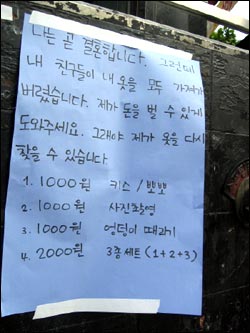 나는 곧 결혼합니다. 그런데
내 친구들이 내 옷을 모두 가져가
버렸습니다. 제가 돈을 벌 수 있게
도와주세요. 그래야 제가 옷을 다시
찾을 수 있습니다
1. 1000원 키스 / 뽀뽀
2. 1000원 사진촬영
3. 1000원 엉덩이 때리기
4. 2000원 3종세트 (1+2+3)